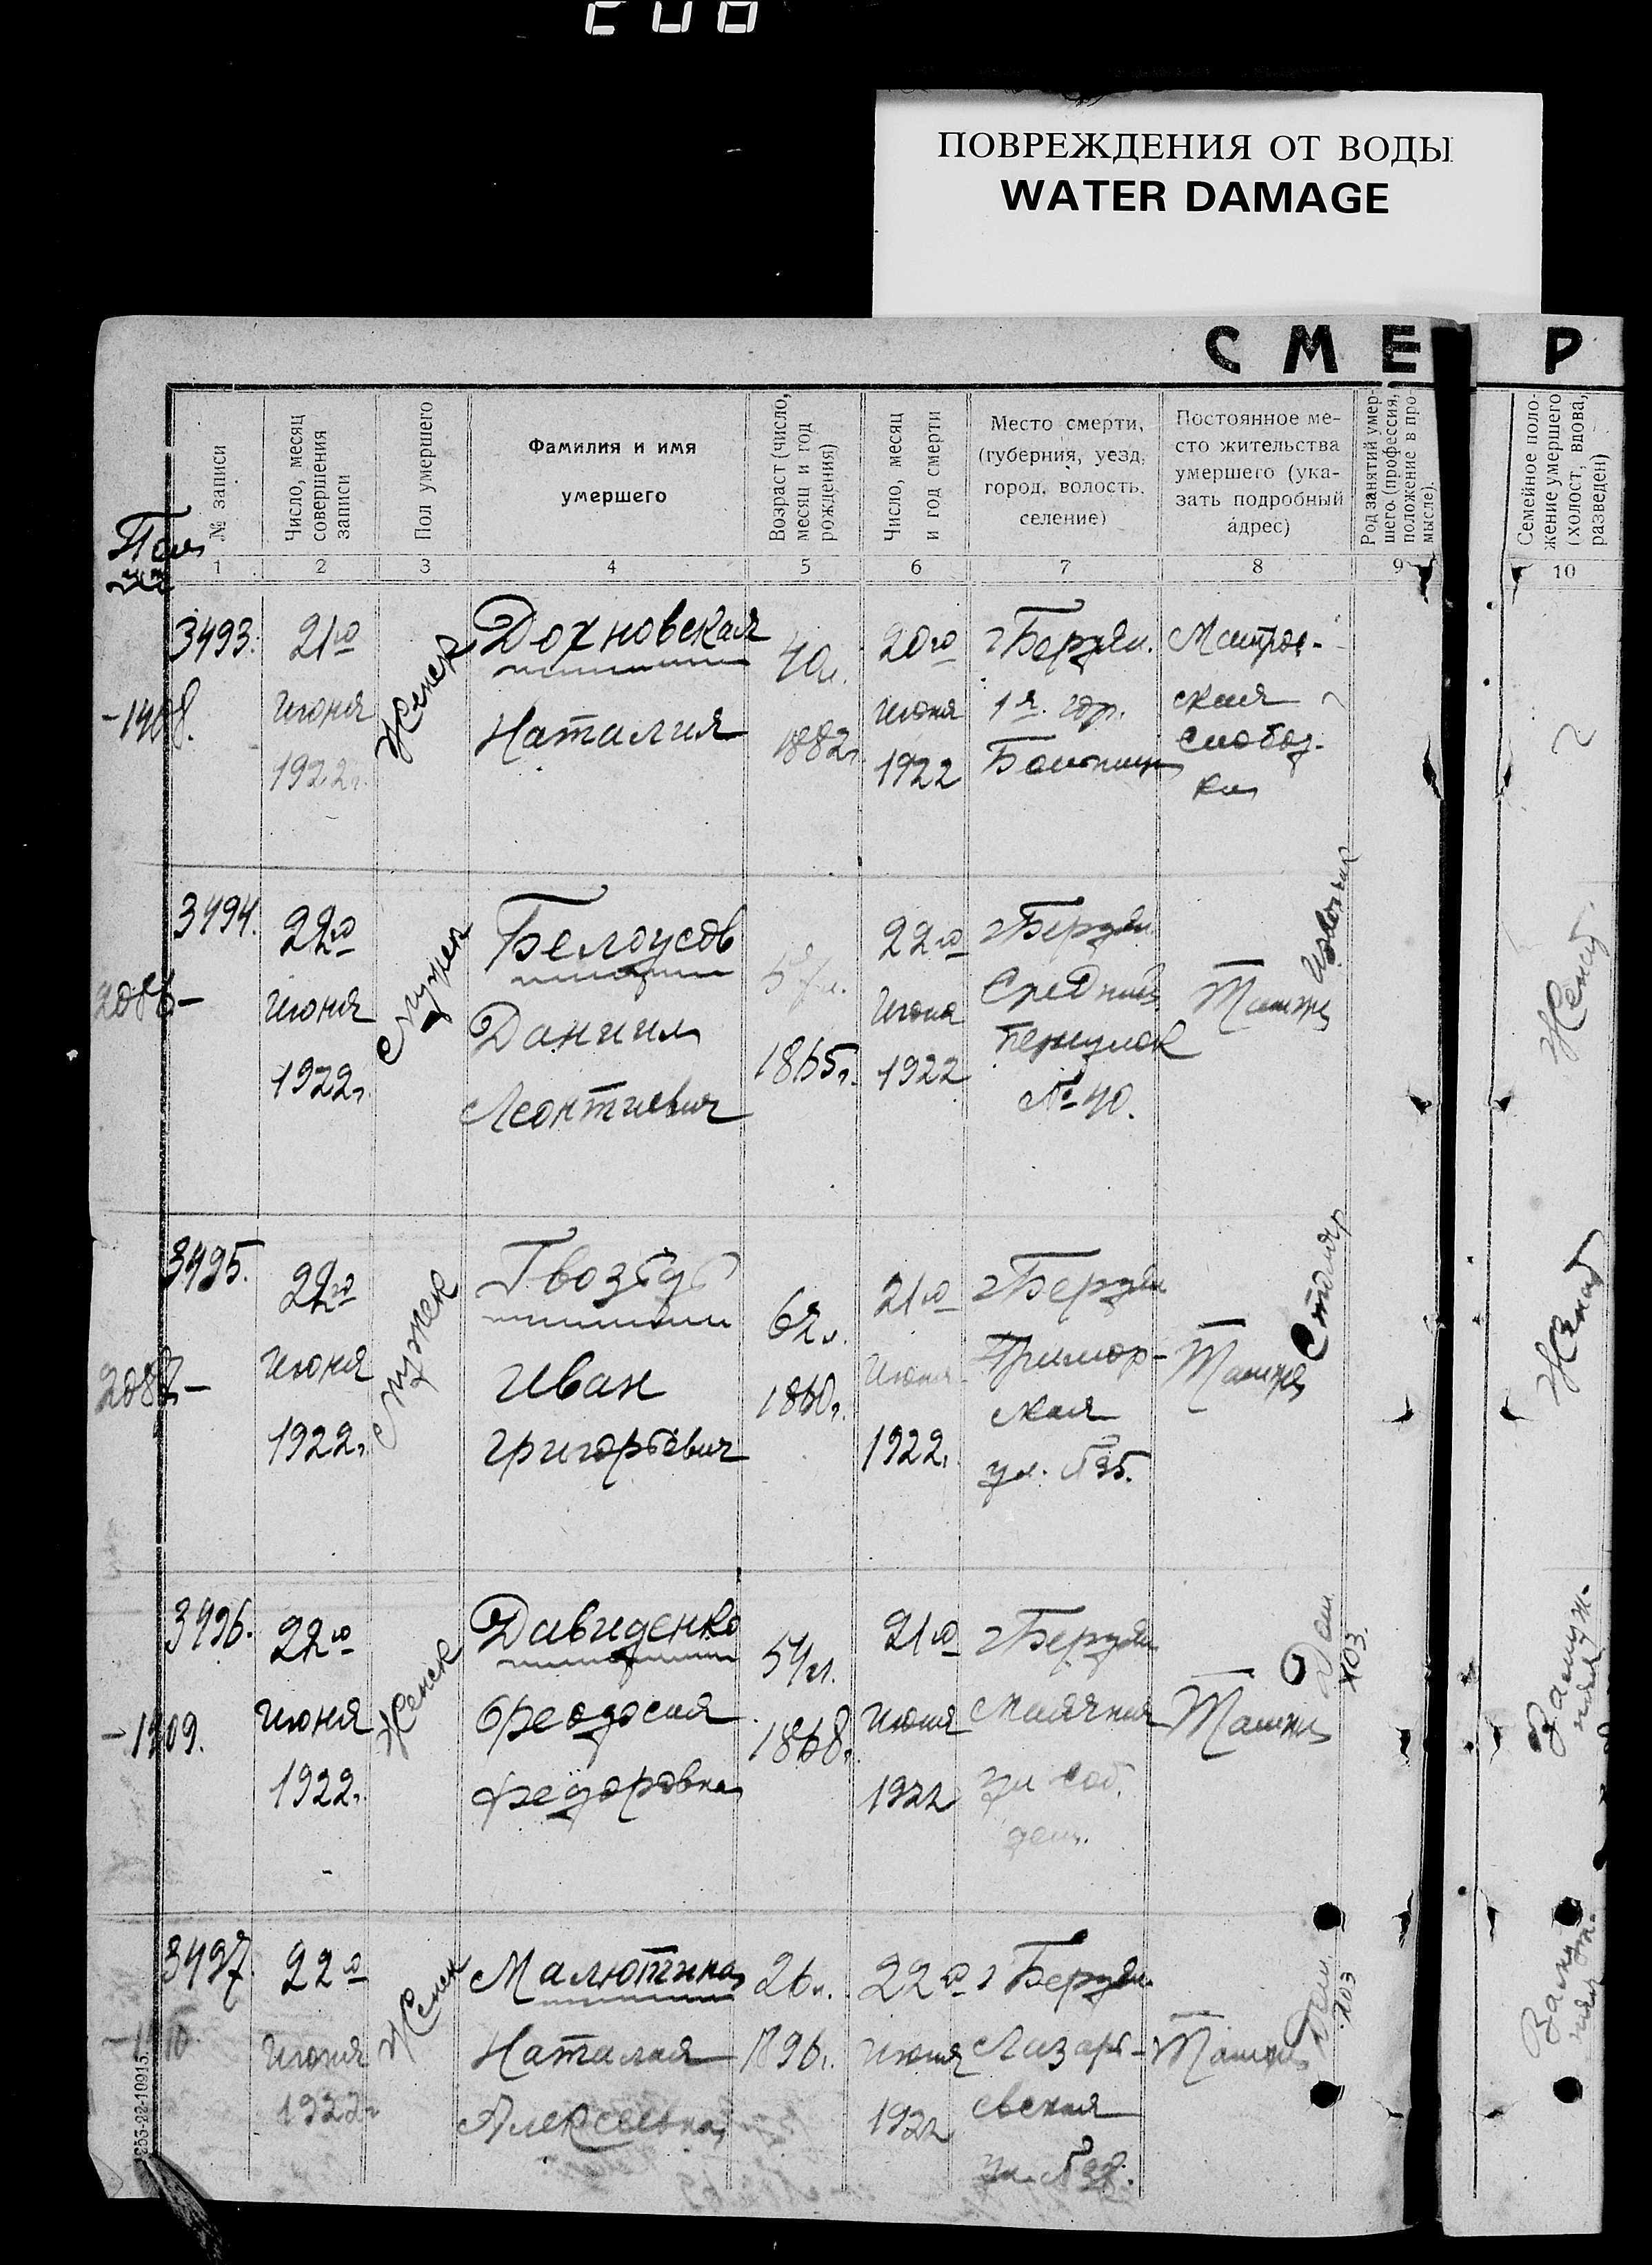 ПОВРЕЖДЕНИЯ ОТ ВОДЫ
WATER DAMAGE
С М Е Р
№ записи
Число, месяц
совершения
записи
Пол умершего
Фамилия и имя
умершего
Возраст (число,
месяц и год
рождения)
Число, месяц
и год смерти
Место смерти,
(губерния, уезд,
город, волость,
селение)
Постоянное ме-
сто жительства
умершего (ука-
зать подробный
адрес)
Род занятий умер-
шего (профессия,
положение в про-
мысле).
Семейное поло-
жение умершего
(холост, вдова,
разведен)
1 2 3 4 5 6 7 8 9 10
3493.
-1408.
21го
июня
1922г.
Женск
Дохновская
Наталия
40л.
1882г.
20го
июня
1922
г Бердян.
1я. гор.
Больниц
Матрос-
ская
Слобод-
ка
?
3494.
2086-
22го
июня
1922г.
Мужск
Белоусов
Даниил
Леонтиевич
57л.
1865г.
22го
июня
1922
г Бердян
Средний
переулок
№ 40.
Там же
Извозчик
Женат.
3495.
2087-
22го
июня
1922г.
Мужск
Гвоздь
Иван
Григорьевич
62л.
1860г.
21го
июня
1922г.
г Бердян
Примор-
ская
ул. №35.
Там же
Столяр
Женат
3496.
-1409.
22го
июня
1922г.
Женск
Давиденко
Феодосия
Федоровна
54л.
1868г.
21го
июня
1922
г Бердян
Маячная
ул соб.
дом.
Там же
Дом
хоз.
Замуж-
няя
3497
22го
июня
1922г
Женск
Малютина
Наталия
Алексеевна
26л.
1896г.
22го
июня
1922
г Бердян.
Лазаре-
вская
ул. №
Там же
Дом
хоз
Замуж-
няя
253-22-10915.